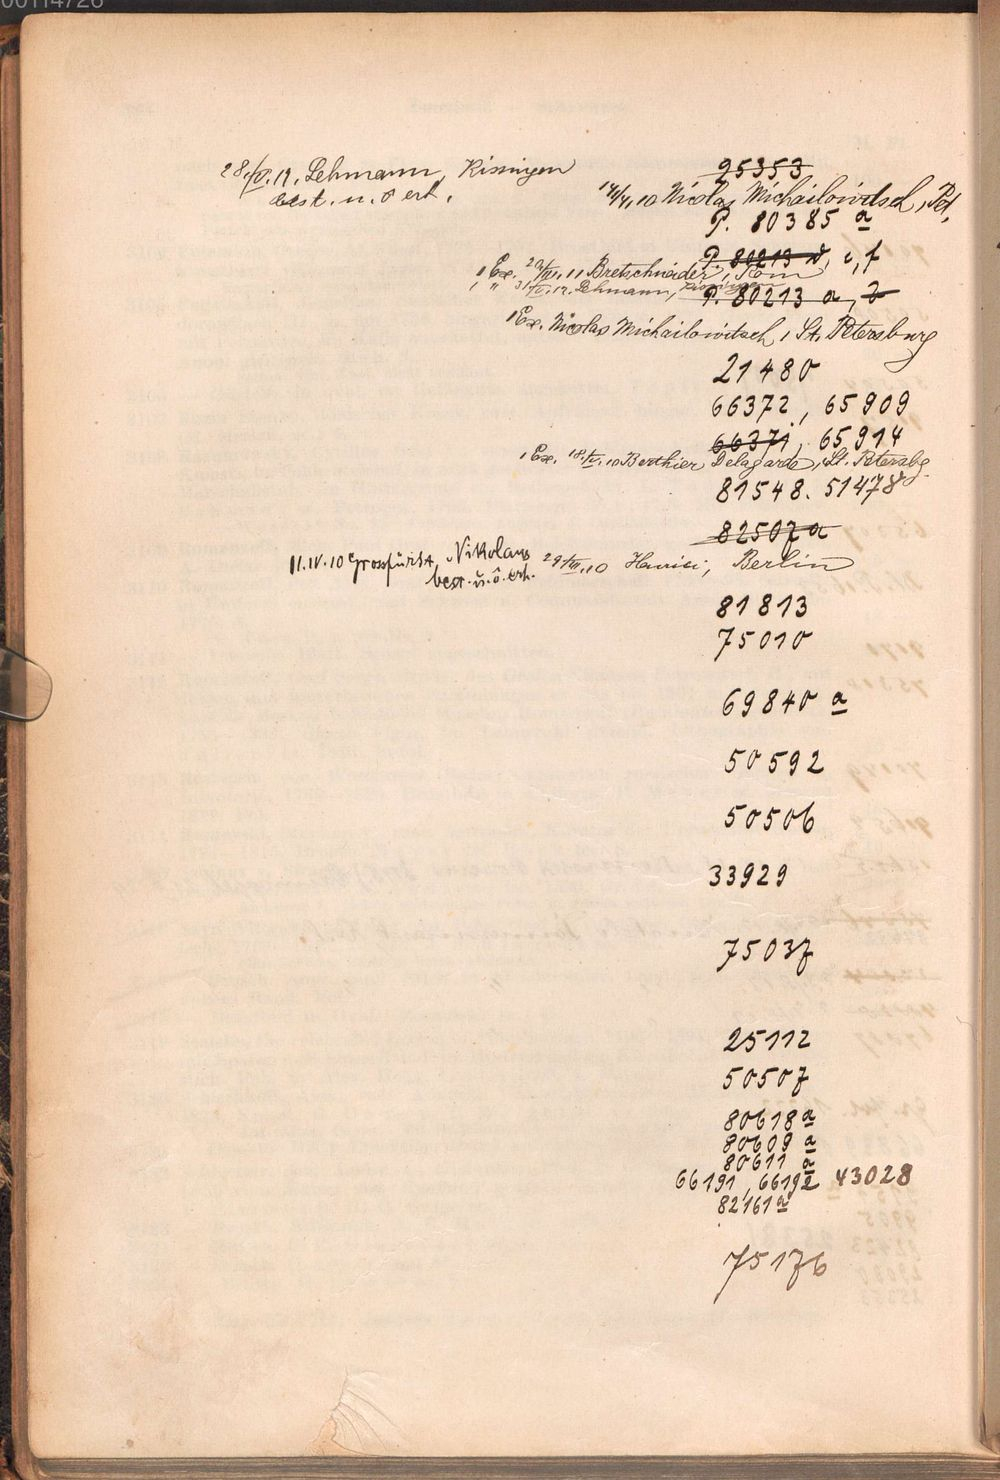 00114726
28./V.12. Lehmann, Kissingen
best. u. ö erh.
25353
14/4.10 Nicolas Michailowitsch, Pet.
P. 80385 a
P. 80213 d, c, f
1 Ex. 11 Bretschneider, Rom
1 " 31/V.12. Lehmann, Kissingen
P. 80213 a, b
1 Ex. Nicolas Michailowitsch, St. Petersburg
21480
66372, 65909
66371, 65914
1 Ex. 18/IV.10 Berthier Delagarde, St. Petersbg.
81548. 51478
82507 a
11.IV.10 Grossfürst Nikolaus
best. u. ö. erh.
29/VII.10 Berlin
81813
75010
69840 a
50592
50506
33929
75037
25112
50507
80618 a
80609 a
80611 a
66191, 66192 43028
82161 a
75176